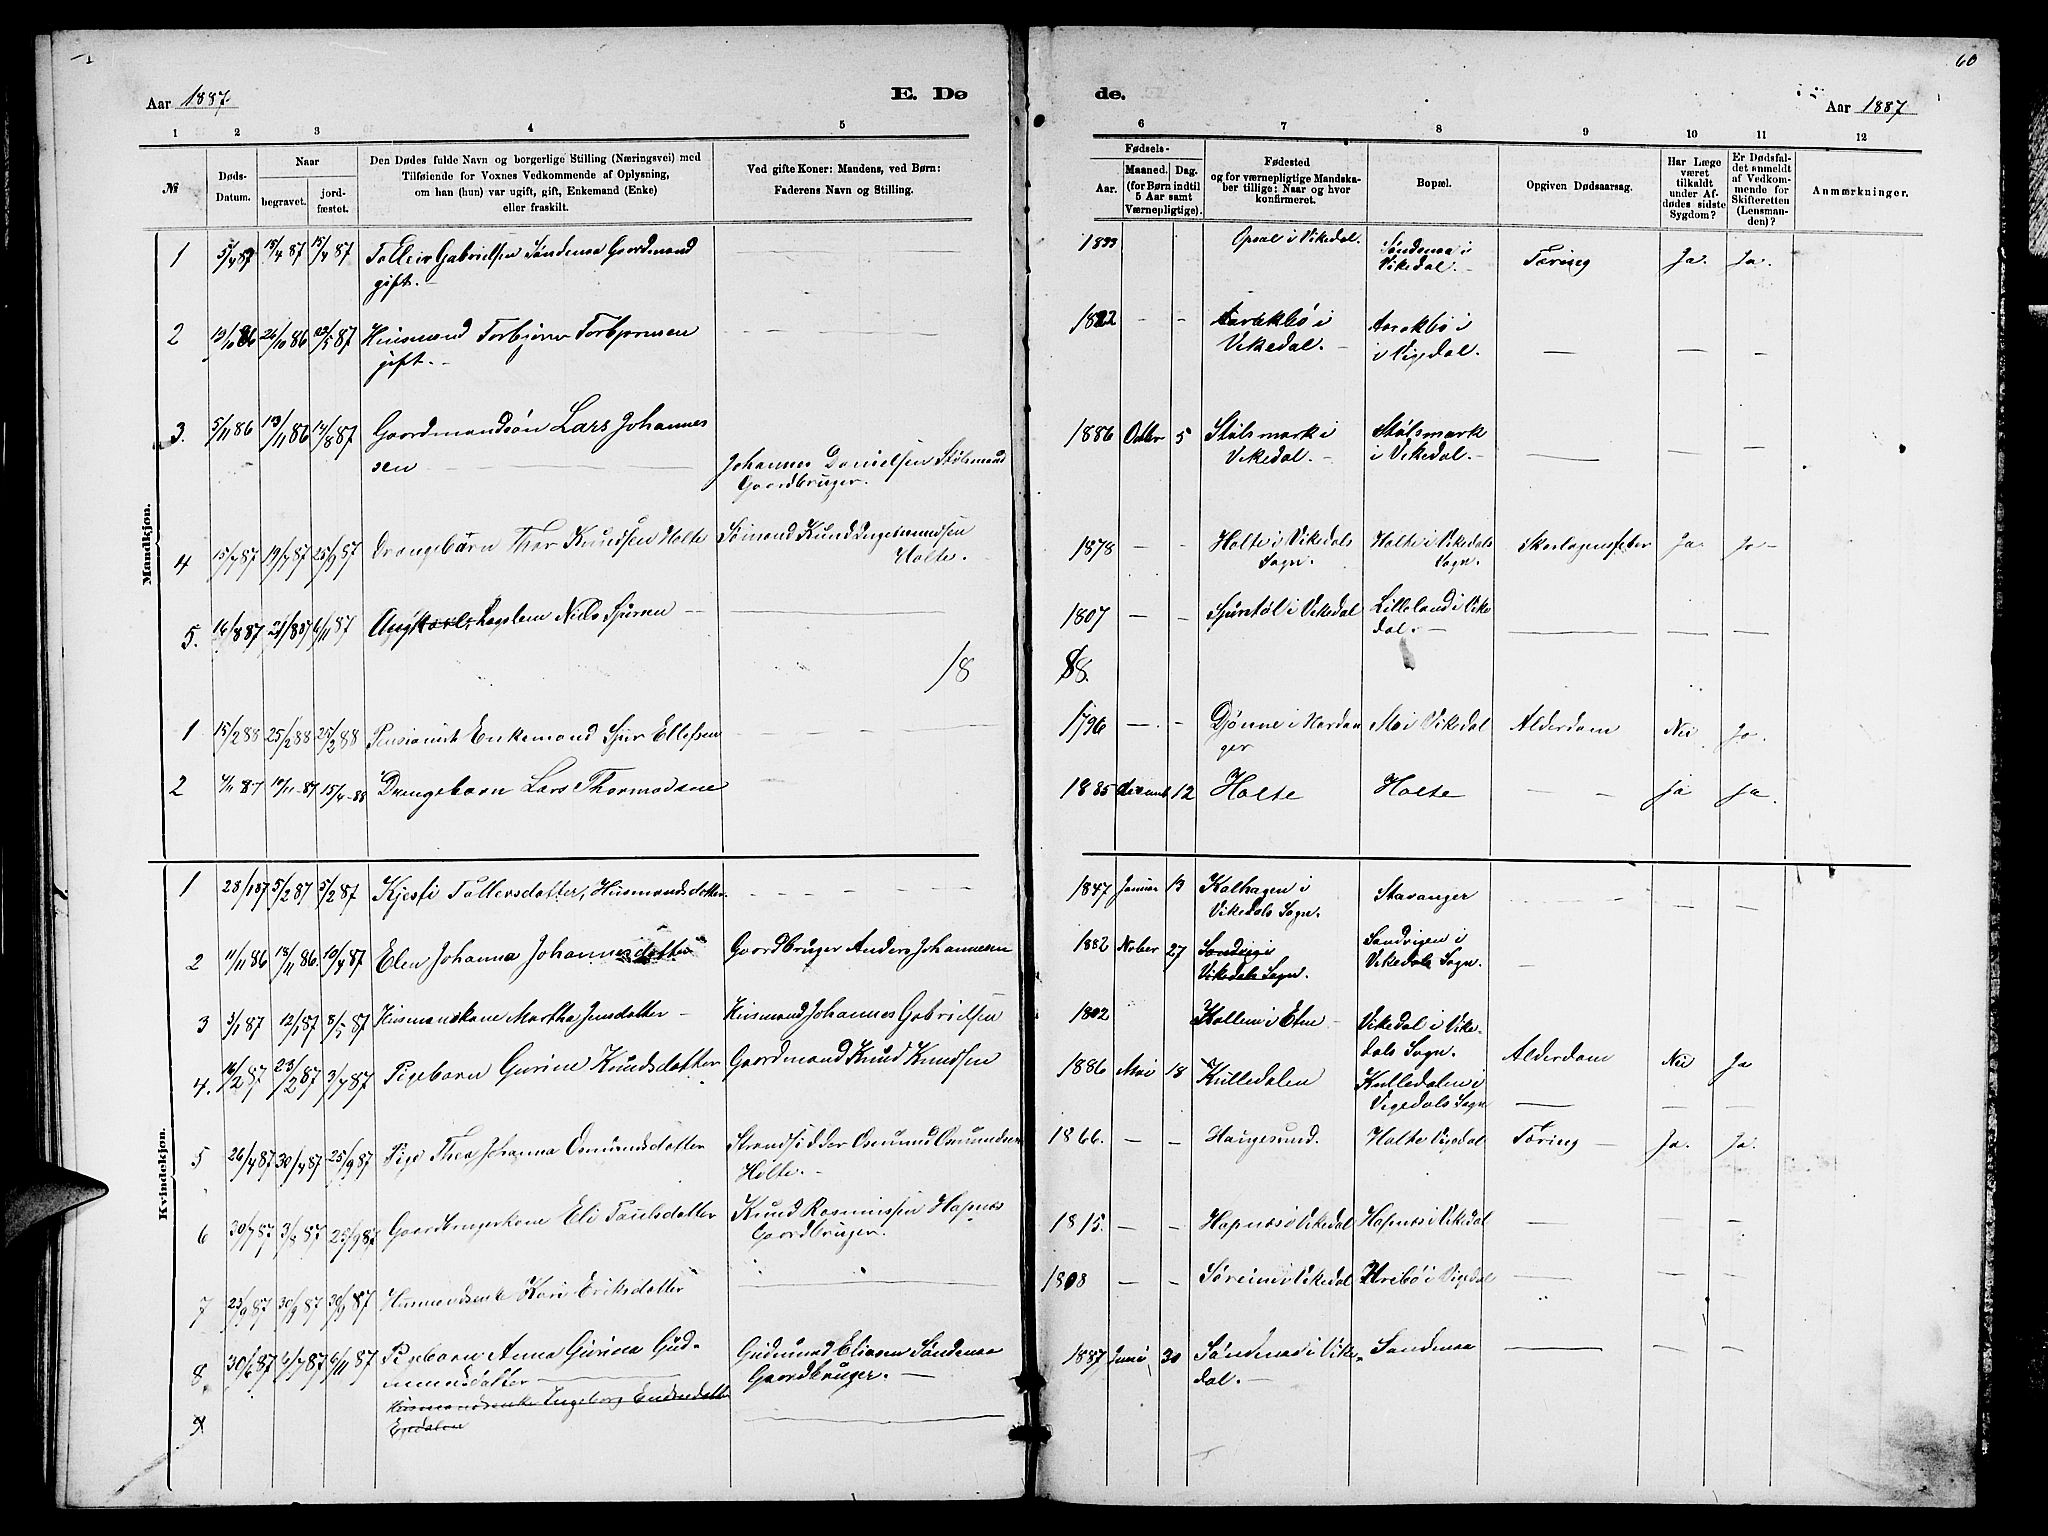 60
Aar 1887.
E. Dø
de.
Aar 1887
1 2 3 4 5 6 7 8 9 10 11 12
№
Døds-Datum.
Naar
begravet.
jord-fæstet.
Den Dødes fulde Navn og borgerlige Stilling (Næringsvei) med
Tilføiende for Voxnes Vedkommende af Oplysning,
om han (hun) var ugift, gift, Enkemand (Enke)
eller fraskilt.
Ved gifte Koner: Mandens, ved Børn:
Faderens Navn og Stilling.
Fødsels-
Aar.
Maaned. Dag.
(for Børn indtil
5 Aar samt
Værnepligtige).
Fødested
og for værnepligtige Mandska-
ber tillige: Naar og hvor
konfirmeret.
Bopæl.
Opgiven Dødsaarsag.
Har Læge
været
tilkaldt
under Af-
dødes sidste
Sygdom?
Er Dødsfal-
det anmeldt
af Vedkom-
mende for
Skifteretten
(Lensman-
den)?
Anmærkninger.
Mandkjøn.
1 5/4 87 15/4 87 15/4 87 Gabrielsen Søndenaa Gaardmand 1833 Opsal i Vikedal. Søndenaa i
gift. — Vikedal. — Tæring Ja. Ja.
2 19/10 86 26/10 86 22/5 87 Husmand Torbjørn Torbjørnsen — — — 1822 — - i i
gift. — Vikedal. — i Vigedal. — — —
3. 5/11 86 13/11 86 13/8 87 Gaardmandsøn Lars Johannes 1886 Octbr 5 Stølsmark i Stølsmark
sen — Johannes Danielsen Vikedal. — i Vikedal. — — — —
Gaardbruger.
4 15/7 87 19/7 87 25/9 87 Drengebarn Thor Knudsen Holte Sømand Knud Ingemundsen 1878 — - Holte i Vikedals Holte i Vikedals Skarlagensfeber Ja Ja —
Holte. Sogn. Sogn.
5. 16/8 87 21/8 87 6/11 87 Lægslem Niels — 1807 — - i Vikedal Lilleland i Vike
dal. — — — —
18 88.
1 15/2 88 25/2 88 25/2 88 Pensionist Enkemand Ellefsen — — — 1796 — - Djønne i Hardan Mo i Vikedal Alderdom Nei Ja.
ger
2 4/11 87 10/11 87 15/4 88 Drengebarn Lars Thormodsen — — — 1885 12 Holte Holte — — Ja Ja.
Kvindekjøn.
1 28/1 87 5/2 87 5/2 87 Tollersdatter, Husmandsdatter. — — — 1847 Januar 13 Kalhagen i Stavanger — — —
Vikedals Sogn.
2 11/11 86 18/11 86. 10/4 87 Elen Johanna Johannesdatter Gaardbruger Anders Johannesen 1882 Nober 27 Sandvig i Sandvigen i
Vikedals Sogn. Vikedals Sogn. —
3 3/1 87 12/1 87 8/5 87 Husmandskone Martha Jensdatter — Husmand Johannes Gabrielsen 1802 i Etne — Vikedal i Vike-
dals Sogn. Alderdom Nei Ja
4. 16/2 87 23/2 87 3/7 87 Pigebarn Gurine Knudsdatter Gaardmand Knud Knudsen 1886 Mai 18 Kulledalen Kulledalen i
Vigedals Sogn — — —
5 26/4 87 30/4 87 25/9 87 Pige Thea Johanna Osmundsdatter Strandsidder Osmund Osmundsen 1866. — - Haugesund. Holte Vigedal Tæring — Ja. Ja.
Holte. —
6 30/7 87 3/8 87 25/9 87 Gaardbrugerkone Eli Paulsdatter Knud Rasmussen Hapnæs 1815. — - Hapnæs i Vikedal Hapnæs i Vikedal — — —
Gaardbruger.
7 23/9 87 30/9 87 30/9 87 Husmandsenke Kari Eriksdatter — 1808 — - Søreim i Vikedal i Vigedal — — —
8 30/6 87 6/7 87 6/11 87 Pigebarn Anna Gurina Gud- Gudmund Eliasen Søndenaa 1887 Juni 30 Søndenaa i Vike- Søndenaa — — —
mundsdatter — Gaardbruger. — dal. —
9 Husmandsenke Ingeborg —